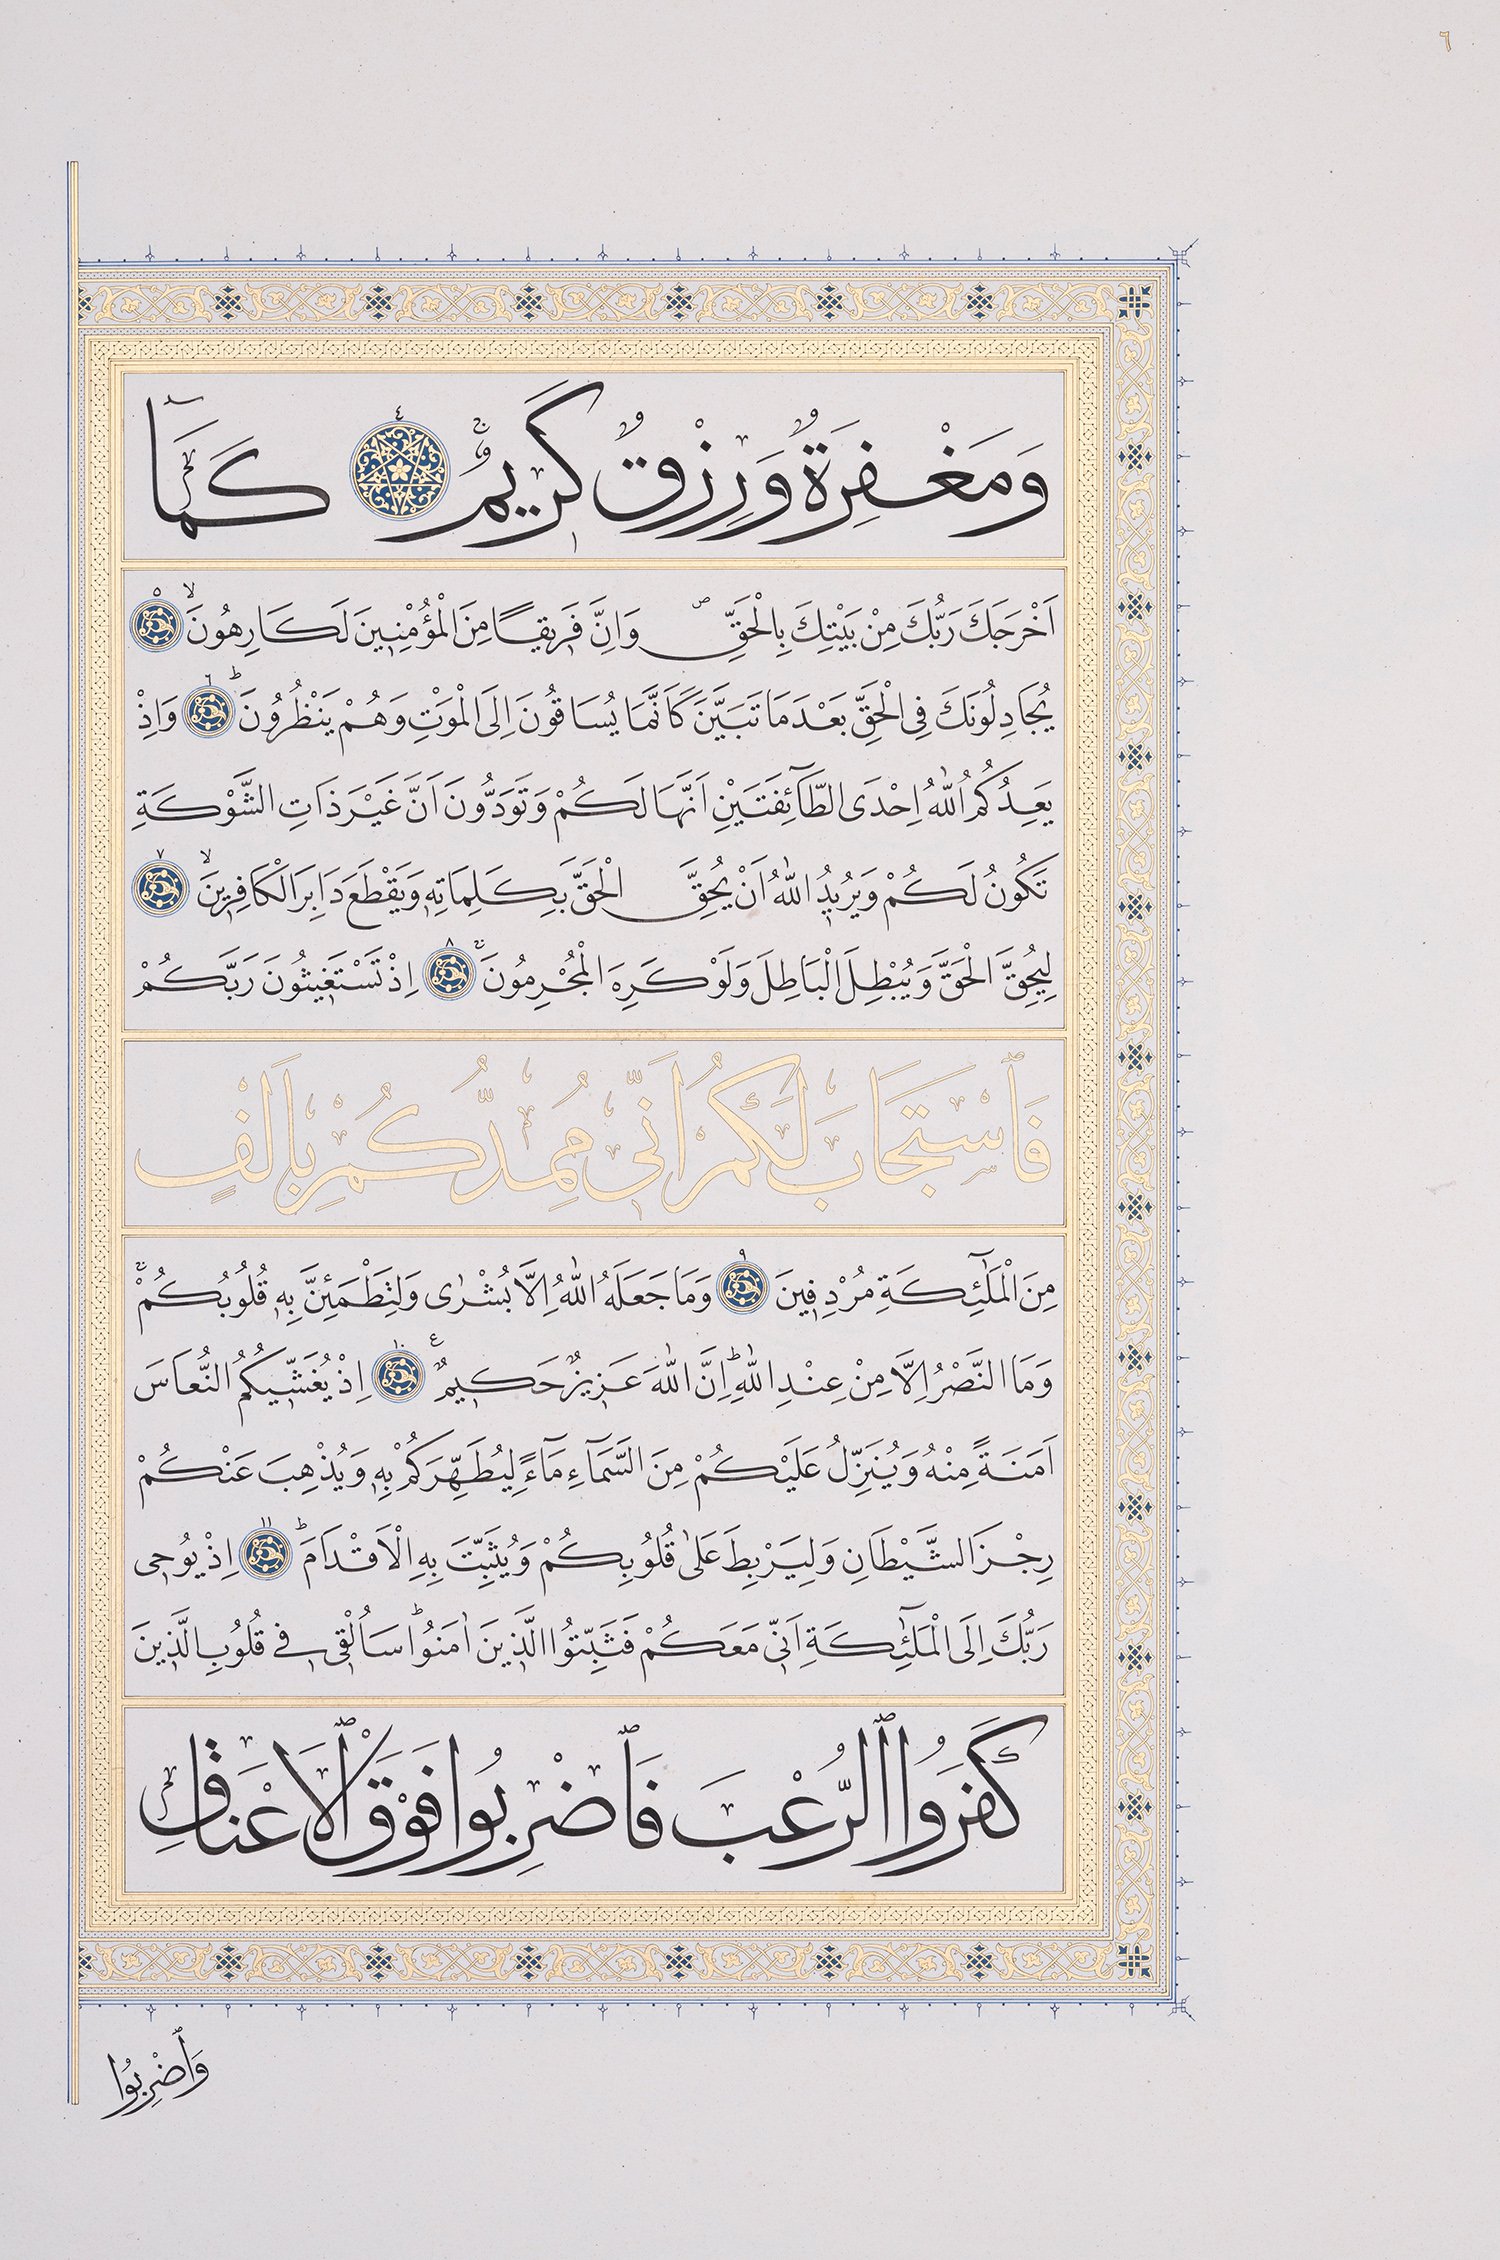 ٦
وَمَغْفِرَةٌ وَرِزْقٌ كَرِيمٌ ٤ كَمَٓا
اَخْرَجَكَ رَبُّكَ مِنْ بَيْتِكَ بِالْحَقِّ ۖ وَاِنَّ فَرِيقًا مِنَ الْمُؤْمِنِينَ لَكَارِهُونَۙ ٥
يُجَادِلُونَكَ فِي الْحَقِّ بَعْدَ مَا تَبَيَّنَ كَاَنَّمَا يُسَاقُونَ اِلَى الْمَوْتِ وَهُمْ يَنْظُرُونَؕ ٦ وَاِذْ
يَعِدُكُمُ اللّٰهُ اِحْدَى الطَّٓائِفَتَيْنِ اَنَّهَا لَكُمْ وَتَوَدُّونَ اَنَّ غَيْرَ ذَاتِ الشَّوْكَةِ
تَكُونُ لَكُمْ وَيُرِيدُ اللّٰهُ اَنْ يُحِقَّ الْحَقَّ بِكَلِمَاتِهِ وَيَقْطَعَ دَابِرَ الْكَافِرِينَۙ ٧
لِيُحِقَّ الْحَقَّ وَيُبْطِلَ الْبَاطِلَ وَلَوْ كَرِهَ الْمُجْرِمُونَۚ ٨ اِذْ تَسْتَغِيثُونَ رَبَّكُمْ
فَٱسْتَجَابَ لَكُمْ اَنِّي مُمِدُّكُمْ بِاَلْفٍ
مِنَ الْمَلٰٓئِكَةِ مُرْدِفِينَ ٩ وَمَا جَعَلَهُ اللّٰهُ اِلَّا بُشْرٰى وَلِتَطْمَئِنَّ بِهِ قُلُوبُكُمْۚ
وَمَا النَّصْرُ اِلَّا مِنْ عِنْدِ اللّٰهِؕ اِنَّ اللّٰهَ عَزِيزٌ حَكِيمٌ ١٠ اِذْ يُغَشِّيكُمُ النُّعَاسَ
اَمَنَةً مِنْهُ وَيُنَزِّلُ عَلَيْكُمْ مِنَ السَّمَٓاءِ مَٓاءً لِيُطَهِّرَكُمْ بِهِ وَيُذْهِبَ عَنْكُمْ
رِجْزَ الشَّيْطَانِ وَلِيَرْبِطَ عَلٰى قُلُوبِكُمْ وَيُثَبِّتَ بِهِ الْاَقْدَامَؕ ١١ اِذْ يُوحِي
رَبُّكَ اِلَى الْمَلٰٓئِكَةِ اَنِّي مَعَكُمْ فَثَبِّتُوا الَّذِينَ اٰمَنُواؕ سَاُلْقِي فِي قُلُوبِ الَّذِينَ
كَفَرُوا ٱلرُّعْبَ فَٱضْرِبُوا فَوْقَ ٱلْاَعْنَاقِ
وَٱضْرِبُوا